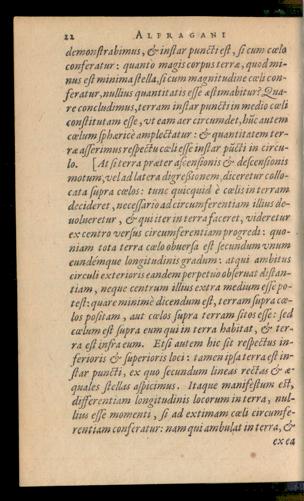 22 ALFRAGANI
demonstrabimus, & instar puncti est, si cum cœlo
conferatur: quantò magis corpus terræ, quod mi-
nus est minima stella, si cum magnitudine cœli con-
feratur, nullius quantitatis esse æstimabitur? Qua-
re concludimus, terram instar puncti in medio cœli
constitutam esse, vt eam aer circumdet, hũc autem
cœlum sphæricè amplectatur: & quantitatem ter-
ræ asserimus respectu cœli esse instar pũcti in circu-
lo. [At si terra præter ascensionis & descensionis
motum, vel ad latera digressionem, diceretur collo-
cata supra cœlos: tunc quicquid è cœlis in terram
decideret, necessariò ad circumferentiam illius de-
uolueretur, & qui iter in terra faceret, videretur
ex centro versus circumferentiam progredi: quo-
niam tota terra cœlo obuersa est secundum vnum
eundémque longitudinis gradum: atqui ambitus
circuli exterioris eandem perpetuò obseruat distan-
tiam, neque centrum illius extra medium esse po-
test: quare minimè dicendum est, terram supra cœ-
los positam, aut cœlos supra terram sitos esse: sed
cœlum est supra eum qui in terra habitat, & ter-
ra est infra eum. Etsi autem hic sit respectus in-
ferioris & superioris loci: tamen ipsa terra est in-
star puncti, ex quo secundum lineas rectas & æ-
quales stellas aspicimus. Itaque manifestum est,
differentiam longitudinis locorum in terra, nul-
lius esse momenti, si ad extimam cœli circumfe-
rentiam conferatur: nam qui ambulat in terra, &
ex ea